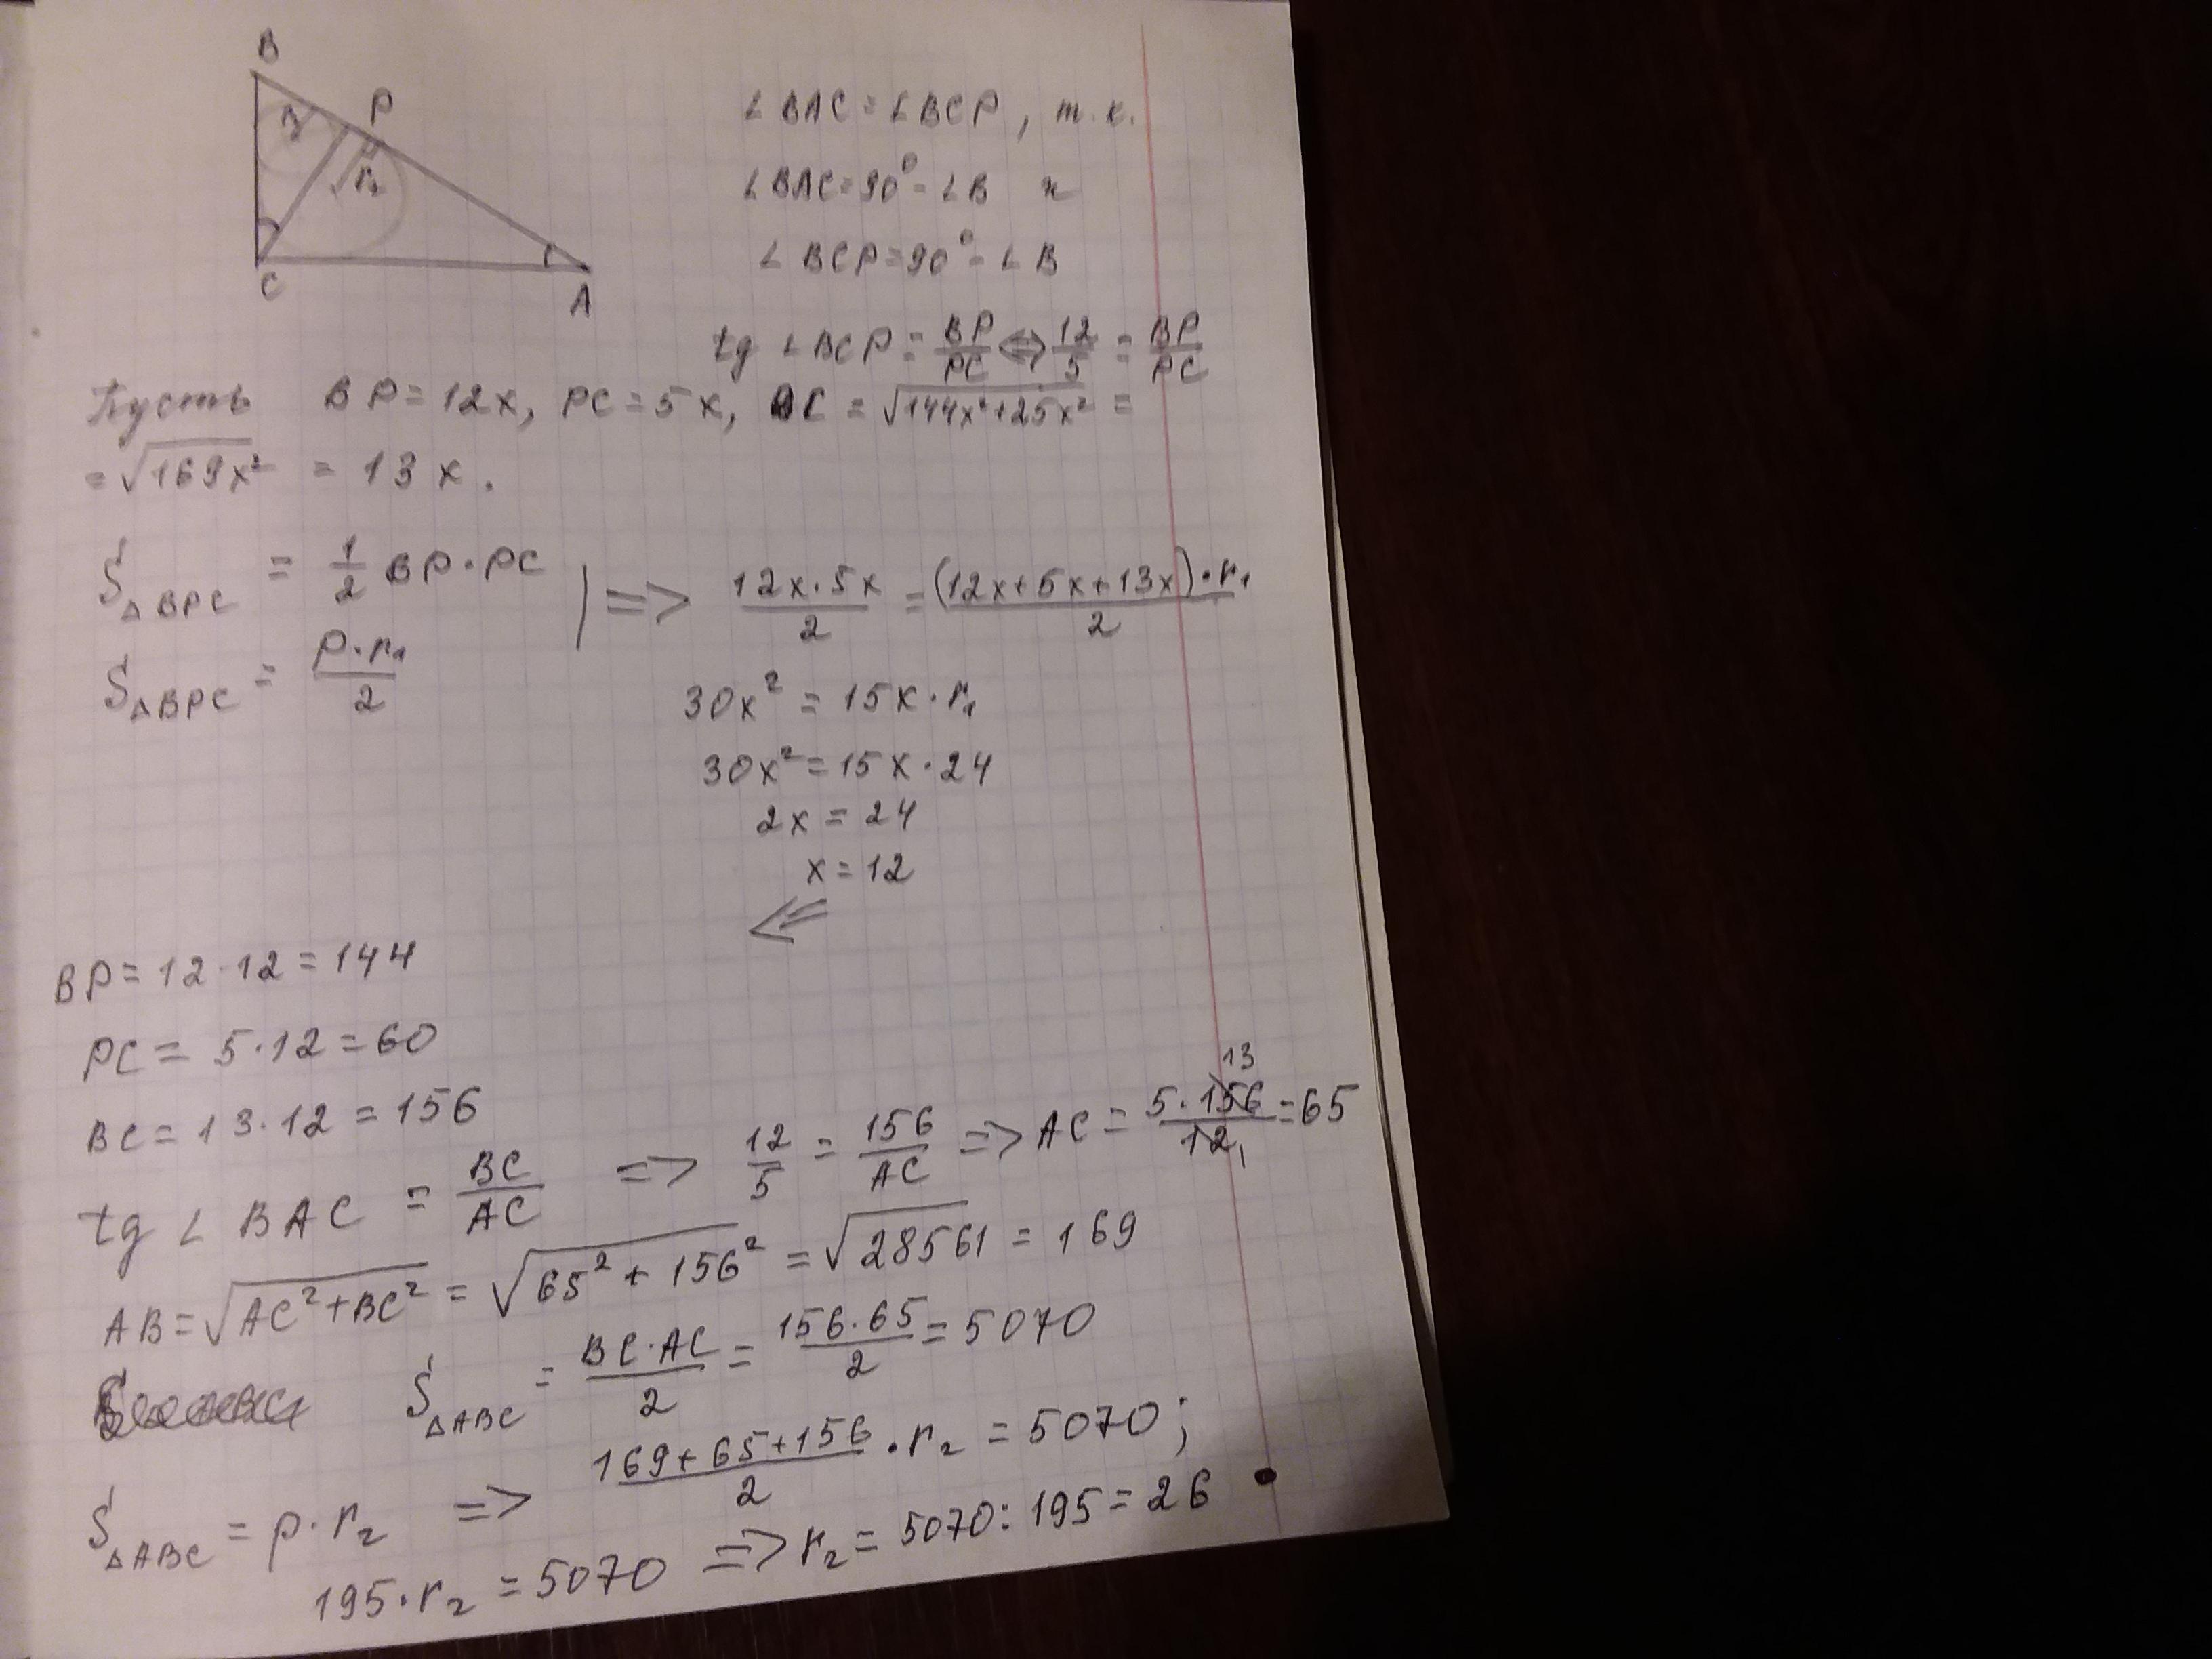 B
P
r₁
r₂
C
A
∠BAC = ∠BCP, т.к.
∠BAC = 90° - ∠B и
∠BCP = 90° - ∠B
tg ∠BCP = BP/PC <=> 12/5 = BP/PC
Пусть BP = 12x, PC = 5x, BC = √(144x² + 25x²) =
= √(169x²) = 13x.
S△BPC = 1/2 BP · PC
S△BPC = P·r₁/2
=> 12x·5x/2 = (12x+5x+13x)·r₁/2
30x² = 15x · r₁
30x² = 15x · 24
2x = 24
x = 12
<=
BP = 12·12 = 144
PC = 5·12 = 60
BC = 13·12 = 156
tg ∠BAC = BC/AC => 12/5 = 156/AC => AC = 5·156/12 = 65
13
1
AB = √(AC² + BC²) = √(65² + 156²) = √28561 = 169
S△ABC = BC·AC/2 = 156·65/2 = 5070
S△ABC = p·r₂ => (169+65+156)/2 · r₂ = 5070;
195·r₂ = 5070 => r₂ = 5070:195 = 26